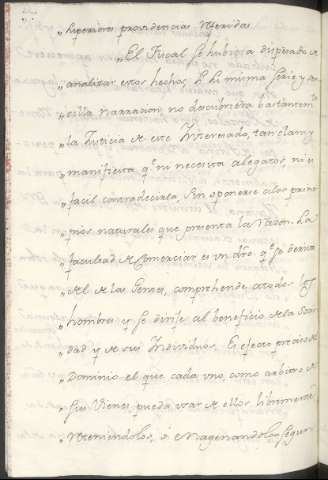 „ superiores providencias referidas.
„ El Fiscal se habría dispensado de
„ analizar estos hechos, si la misma serie y sen-
„ cilla narracion no descubriera bastantemte
„ la Justicia de este Interesado, tan clara y
„ manifiesta qe ni necesita alegatos, ni es
„ facil contradecirla, sin oponerse a los princi-
„ pios naturales que presenta la razon. La
„ facultad de comerciar es un dro. qe se deriva
„ del de las Gentes, comprehende a todos los
„ hombres y se dirije al beneficio de la Socie-
„ dad y de sus Individuos. Es efecto preciso del
„ Dominio el que cada uno, como arbitro de
„ sus Vienes pueda usar de ellos libremente
„ reteniendolos, ó enagenandolos segun